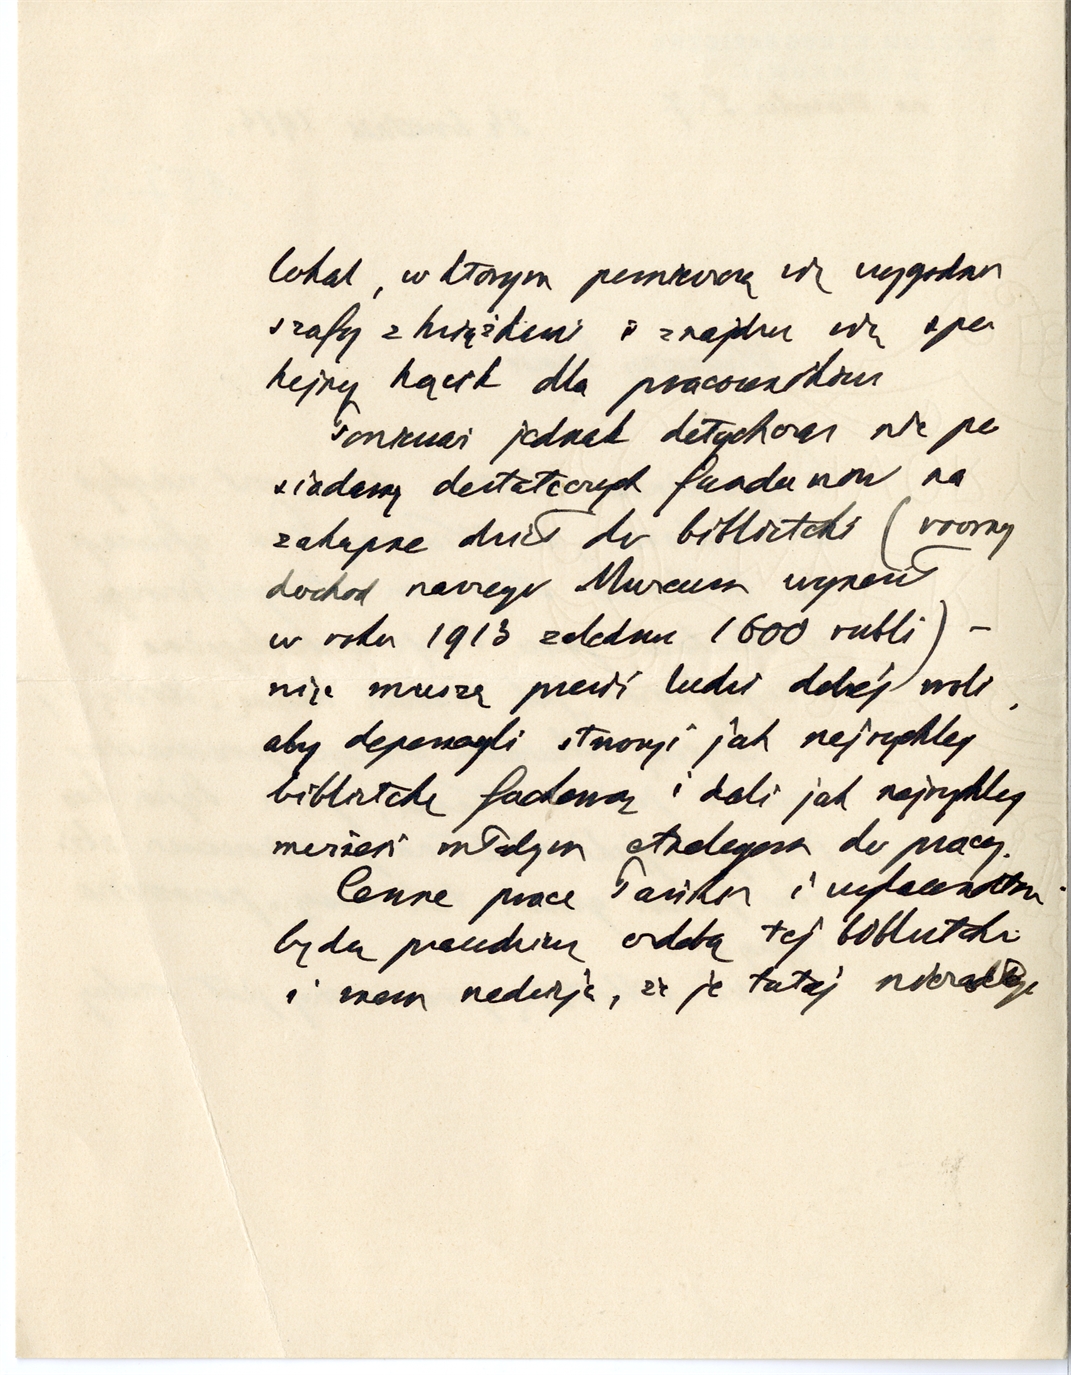 lokal, w którym pomieszczą się wygodnie
szafy z książkami i znajdzie się spo
kojny kącik dla pracowników
Ponieważ jednak dotychczas nie po
siadamy dostatecznych funduszów na
zakupne dzieł do biblioteki (roczny
dochód naszego Muzeum wynosił
w roku 1913 zaledwie 1600 rubli) –
więc muszę prosić ludzi dobrej woli,
aby dopomogli stworzyć jak najrychlej
bibliotekę fachową i dali jak najrychlej
możność młodym etnologom do pracy.
Cenne prace Pańskie i wydawnictwa
będą prawdziwą ozdobą tej biblioteki
i mam nadzieję, że je tutaj